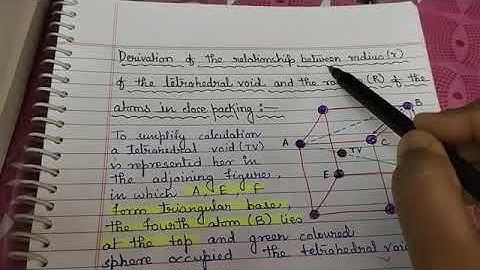 Derivation of the relationship between radius (r)
of the tetrahedral void and the (R) of the
atoms in close packing :—
To simplify calculation
a tetrahedral void (TV)
is represented her in
the adjoining figure,
in which A, E, F
form triangular base,
the fourth atom (B) lies
at the top and green coloured
sphere occupied the tetrahedral void
A
B
C
TV
E